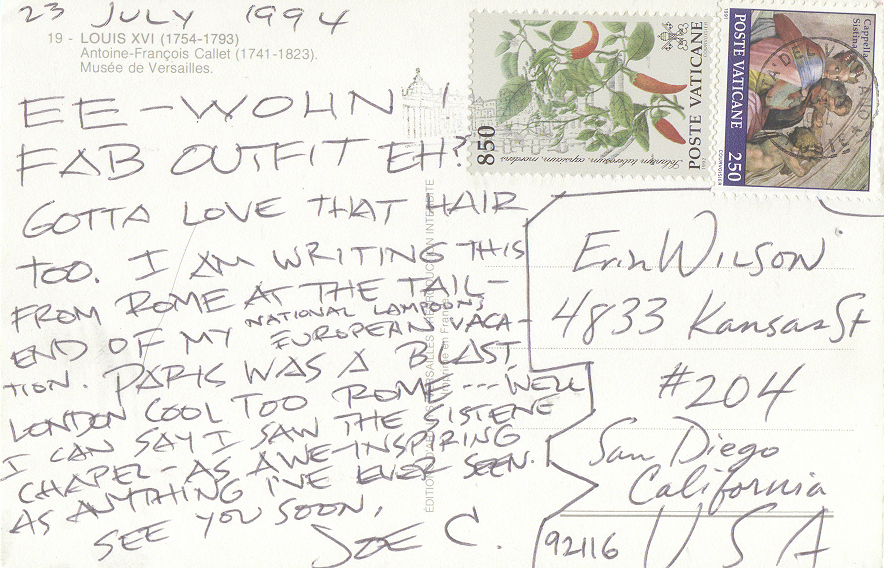 23 JULY 1994
19 - LOUIS XVI (1754-1793)
Antoine-François Callet (1741-1823).
Musée de Versailles.
EE-WOHN!
FAB OUTFIT EH?
GOTTA LOVE THAT HAIR
TOO. I AM WRITING THIS
FROM ROME AT THE TAIL-
END OF MY NATIONAL LAMPOONS EUROPEAN VACA-
TION. PARIS WAS A BLAST
LONDON COOL TOO ROME --- WELL
I CAN SAY I SAW THE SISTENE
CHAPEL - AS AWE-INSPIRING
AS ANYTHING I'VE EVER SEEN.
SEE YOU SOON,
JOE C.
850
POSTE VATICANE
Solanum tuberosum, capsicum, mordens
1992
COURVOISIER
POSTE VATICANE 250
Cappella
Sistina
1991
COURVOISIER
Erin WILSON
4833 Kansas St
#204
San Diego
California
92116 USA
REPRODUCTION INTERDITE
Imprimé en France